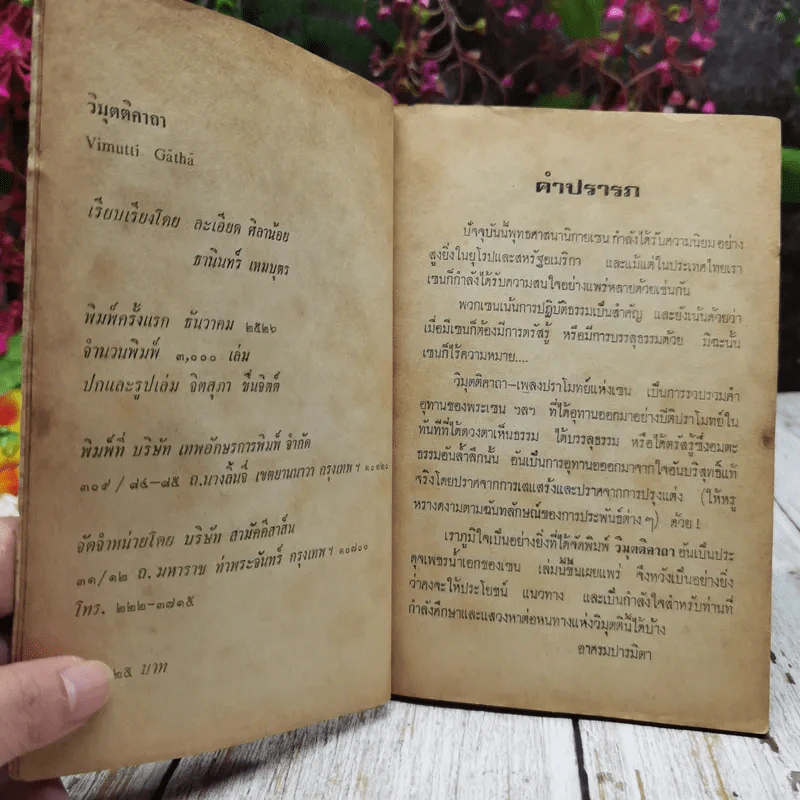 วิมุตติคาถา
Vimutti Gāthā
เรียบเรียงโดย ละเอียด ศิลาน้อย
ธานินทร์ เหมบุตร
พิมพ์ครั้งแรก ธันวาคม ๒๕๒๖
จำนวนพิมพ์ ๓,๐๐๐ เล่ม
ปกและรูปเล่ม จิตสุภา ขื่นจิตต์
พิมพ์ที่ บริษัท เทพอักษรการพิมพ์ จำกัด
๓๐๙/๘๔-๘๕ ถ.นางลิ้นจี่ เขตยานนาวา กรุงเทพฯ ๑๐๑๒๐
จัดจำหน่ายโดย บริษัท สามัคคีสาส์น
๓๑/๑๒ ถ.มหาราช ท่าพระจันทร์ กรุงเทพฯ ๑๐๘๐๐
โทร. ๒๒๒-๓๗๑๕
๒๕ บาท
คำปรารภ
ปัจจุบันนี้พุทธศาสนานิกายเซน กำลังได้รับความนิยม อย่าง
สูงยิ่งในยุโรปและสหรัฐอเมริกา และแม้แต่ในประเทศไทยเรา
เซนก็กำลังได้รับความสนใจอย่างแพร่หลายด้วยเช่นกัน
พวกเซนเน้นการปฏิบัติธรรมเป็นสำคัญ และยังเน้นด้วยว่า
เมื่อมีเซนก็ต้องมีการตรัสรู้ หรือมีการบรรลุธรรมด้วย มิฉะนั้น
เซนก็ไร้ความหมาย....
วิมุตติคาถา-เพลงปราโมทย์แห่งเซน เป็นการรวบรวมคำ
อุทานของพระเซน ฯลฯ ที่ได้อุทานออกมาอย่างปีติปราโมทย์ใน
ทันทีที่ได้ดวงตาเห็นธรรม ได้บรรลุธรรม หรือได้ตรัสรู้ซึ่งอมตะ
ธรรมอันล้ำลึกนั้น อันเป็นการอุทานออกมาจากใจอันบริสุทธิ์แท้
จริงโดยปราศจากการเสแสร้งและปราศจากการปรุงแต่ง (ให้หรู
หรางดงามตามฉันทลักษณ์ของการประพันธ์ต่าง ๆ) ด้วย !
เราภูมิใจเป็นอย่างยิ่งที่ได้จัดพิมพ์ วิมุตติคาถา อันเป็นประ
ดุจเพชรน้ำเอกของเซน เล่มนี้ขึ้นเผยแพร่ จึงหวังเป็นอย่างยิ่ง
ว่าคงจะให้ประโยชน์ แนวทาง และเป็นกำลังใจสำหรับท่านที่
กำลังศึกษาและแสวงหาต่อหนทางแห่งวิมุตตินี้ได้บ้าง
อาศรมปารมิตา